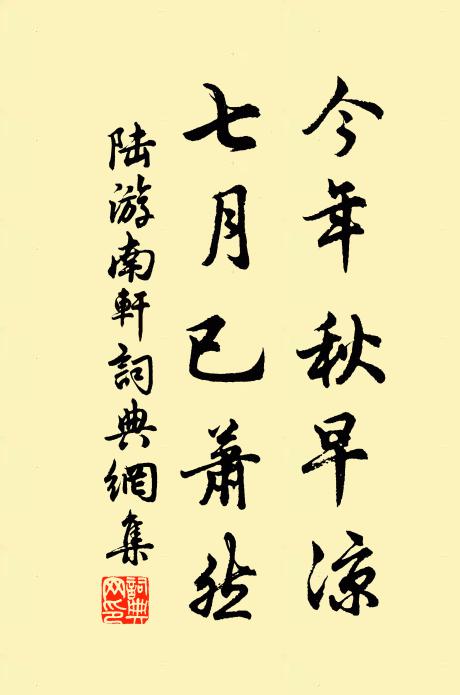 今年秋早涼
七月已蕭然
陆游南軒詞典網集
詞典
网印